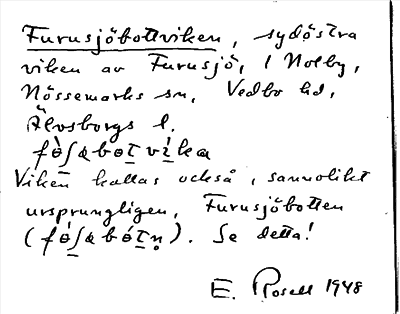 Furusjöbottviken, sydöstra
viken av Furusjö, i Nolby,
Nössemarks sn, Vedbo hd,
Älvsborgs l.
fø̀ʃabøtvı̀ka
Viken kallas också, sannolikt
ursprungligen, Furusjöbotten
(fø̀ʃabótn̥). Se detta!
E. Rosell 1948